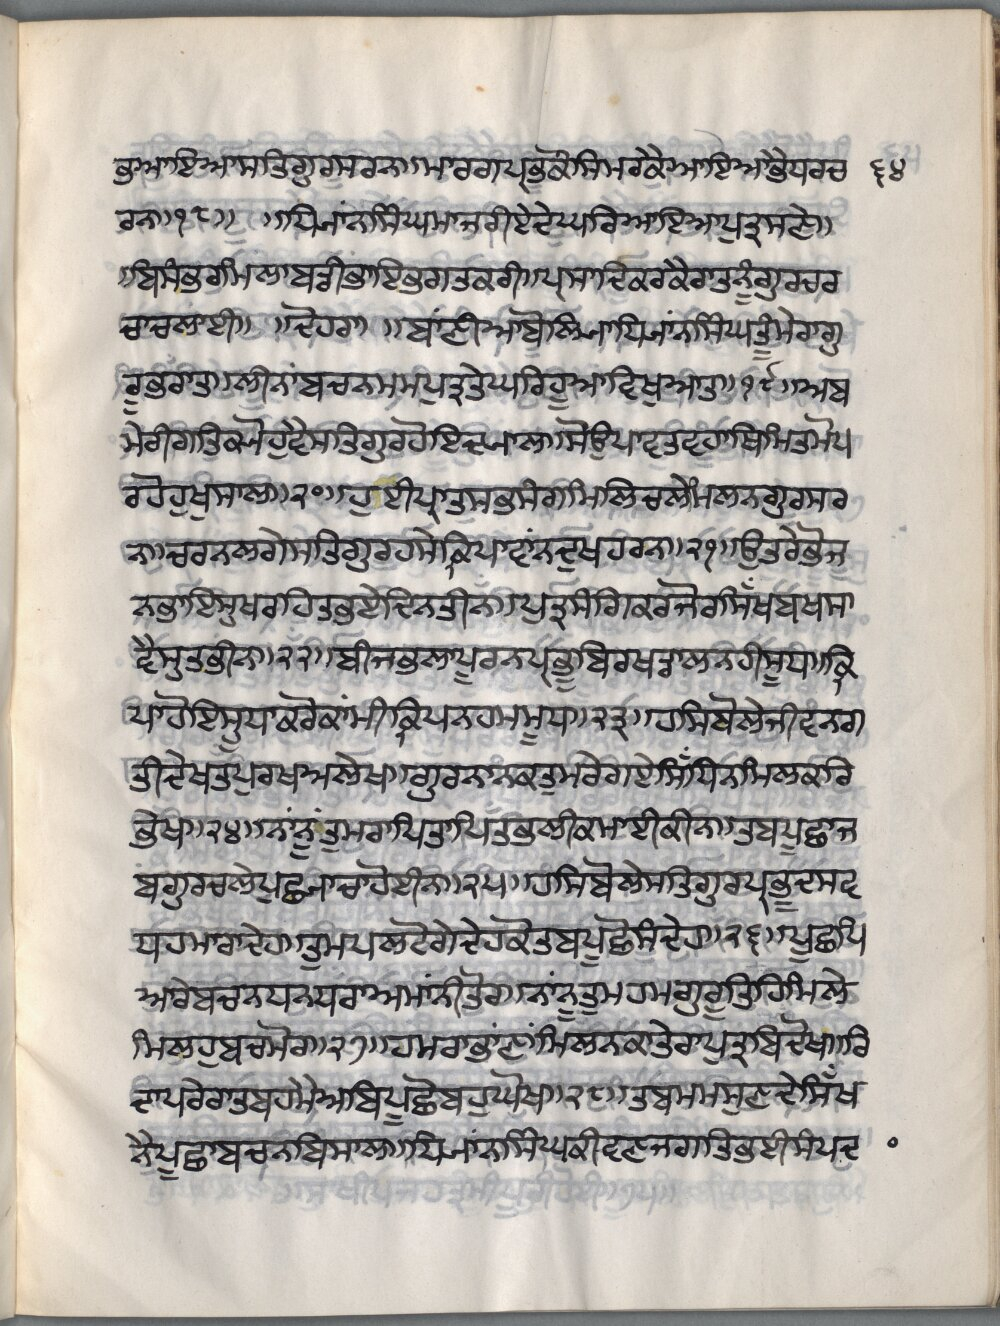 ਭੁਆਇਆਸਤਿਗੁਰਸਰਨਾ।ਮਾਰਗਪ੍ਰਭੁਕੌਸਿਮਰਕੈਆਇਆਭੈਪਰਚ ੬੪
ਰਨਾ।੧੮॥ ॥ਧਿਆਂਨਸਿੰਘਮਾਜਰੀਏਦੇਘਰਿਆਇਆਪੁਤ੍ਰਸਣੇ॥
ਬਿਸੰਭਰਗੰਸਲਾਬਤੀਭਾਇਭਗਤਕਰੀ॥ਪ੍ਰਸਾਦਿਕਰਕੈਰਾਤਨੂੰਗੁਰਚਰ
ਚਾਚਲਾਈ॥ ॥ਦੋਹਰਾ ॥ਬਾਂਣੀਆਬੋਲਿਆਧਿਆਂਨਸਿੰਘਤੂੰਮੇਰਾਗੁ
ਰੂਭਰਾਤ।ਲੀਨਾਂਬਚਨਮਮਪੁਤ੍ਰਤੇਘਰਿਹੂਆਵਿਖੁਆਤ॥੧੯॥ਅਬ
ਮੇਰੀਗਤਿਕਿਔਹੁਵੈਸਤਿਗੁਰਹੋਇਦਯਾਲ।
ਰਹੋਹੁਖੁਸਾਲ॥੨੦॥ਹੁਈਪ੍ਰਾਤਸਭਸੰਗਮਿਲਿਚਲੇਮਿਲਨਗੁਰਸਰ
ਨਾ।ਚਰਨਲਗੇਸਤਿਗੁਰਹਸੇਕ੍ਰਿਪਾਵਾਂਨਦੁਖਹਰਨਾ॥੨੧॥ਉਤਰੇਭੋਜ
ਨਭਾਇਸੁਖਰਹਿਤਭਏਦਿਨਤੀਨ।ਪੁਤ੍ਰਸੰਗਿਕਰਜੋਰਸਿੱਖਬਖਸਾ
ਵੈਸੁਤਭੀਨ॥੨੨॥ਬੀਜਭਲਾਪੂਰਨਪ੍ਰਭੂਬਿਰਖਡਾਲਨਹੀਸੂਧਾ।ਕ੍ਰਿ
ਪਾਹੋਇਸੂਧਾਕਰੋਕਾਂਮੀਕ੍ਰਿਪਨਹਮਮੂਧਾ॥੨੩॥ਹਸਿਬੋਲੇਜੀਵਨਗ
ਤੀਦੇਖਤਪੁਰਖਅਲੇਖਾ।ਗੁਰਨਾਨਕਤੁਮਰੇਗਏਸਿੱਧਿਨਮਿਲਕਰਿ
ਭੇਖਾ॥੨੪॥ਨਾਂਨੂੰਤੁਮਰਾਪਿਤਾਪਿਤਭਲੀਕਮਾਈਕੀਨ।ਤਬਪੂਛਾਜ
ਬਗੁਰਚਲੇਪੁਛਨਾਚਾਹੋਈਨ॥੨੫॥ਹਸਿਬੋਲੇਸਤਿਗੁਰਪ੍ਰਭੂਦਸਵ
ਧਹਮਾਰਾਦੇਹ।ਤੁਮਪਲਟੋਗੇਦੇਹਕੌਤਬਪੂਛੋਸੰਦੇਹ॥੨੬॥ਪੂਛਪਿ
ਆਰੇਬਚਨਧਨਧਰਾਅਮਾਂਨੀਤੋਰਾ।ਨਾਂਨੂਤੁਮਹਮਗੁਰੂਤਿਹਿਮਿਲੇ
ਮਿਲਹੁਬਚਮੋਰਾ॥੨੭॥ਹਮਰਾਭਾਂਣਾਂਮਿਲਨਕਾਤੇਰਾਪੁਤ੍ਰਬਿਦੋਖਾ।ਰਿ
ਦਾਧਰੇਰਾਤਬਹਮੈਆਬਿਪੂਛੋਬਹੁਘੋਖਾ॥੨੮॥ਤਬਮਮਸੁਣਦੇਸਿੱਖ
ਨੈਪੂਛਾਬਚਨਬਿਸਾਲਾ।ਧਿਆਂਨਸਿੰਘਕੀਵਣਜਗਤਿਭਈਸੰਪਦ